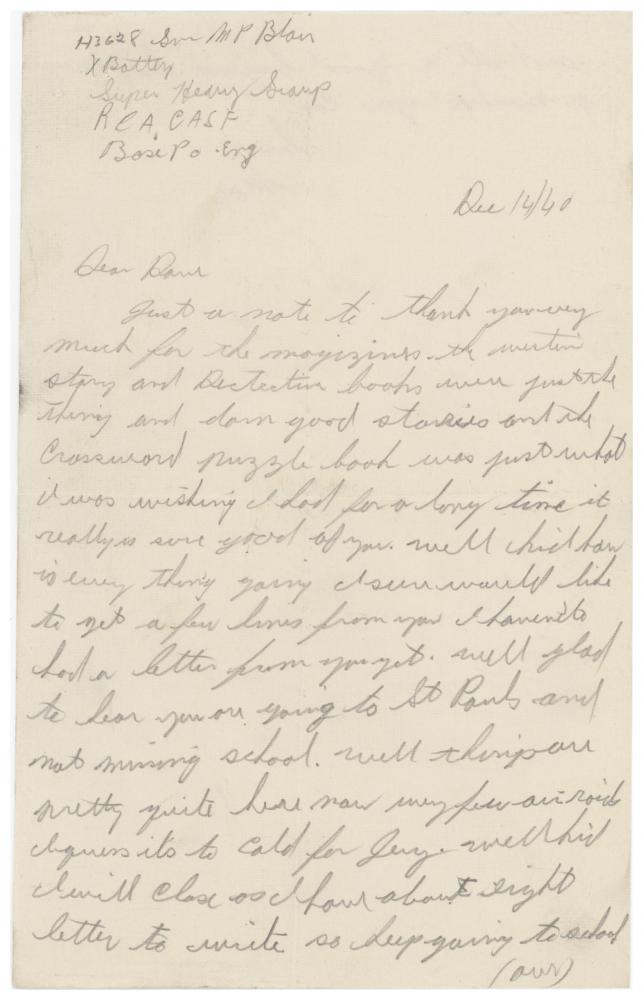 H3628 Gnr M P Blair
X Battery
Super Heavy Group
RCA, CASF
Base Po Eng
Dec 14/40
Dear Dave
Just a note to thank you very
much for the magizines. the western
story and Dectective books were just the
thing and darn good stories and the
Crossword puzzle book was just what
I was wishing I had for a long time it
really is sure good of you. well kid how
is every thing going I sure would like
to get a few lines from you I haven't
had a letter from you yet. well glad
to hear you are going to St Pauls and
not missing school. well things are
pretty quite here now very few air raids
I guess its to cold for Jerry. well kid
I will close as I have about eight
letter to write so keep going to school
(over)